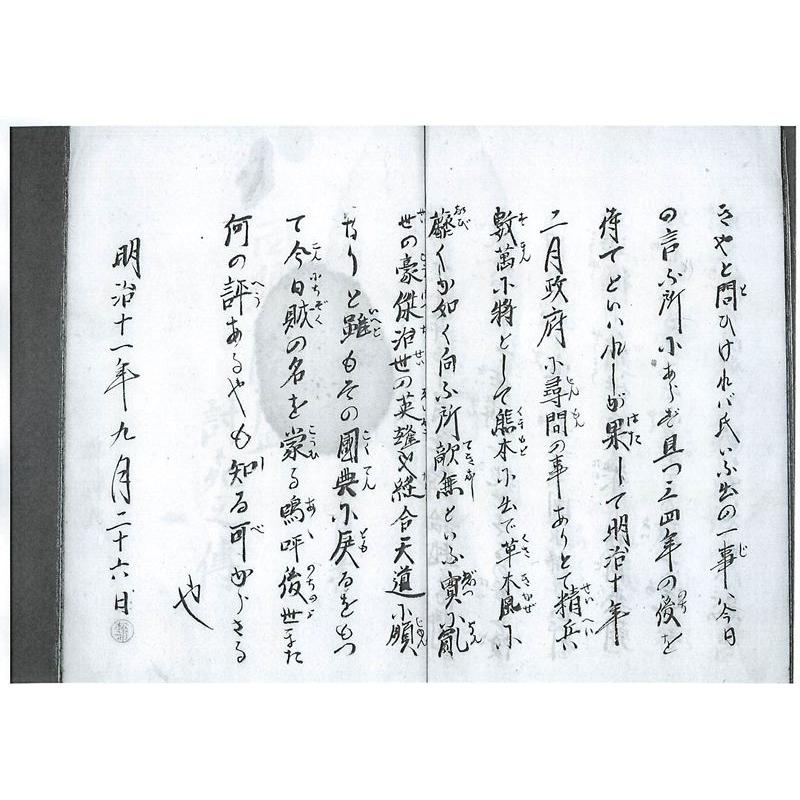 きやと問ひけれバ氏いふ出の一事ハ今日
の言ふ所にあらず且つ三四年の後を
待てといハれしが果して明治十年
二月政府に尋問の事ありとて精兵
數萬に將として熊本に出で草木風に
靡くが如く向ふ所敵無といふ實に亂
世の豪傑治世の英雄縦合天道に順
なりと雖もその國典に戻るをもつ
て今日賊の名を蒙る嗚呼後世また
何の評あるやも知る可からざる
也
明治十一年九月二十六日